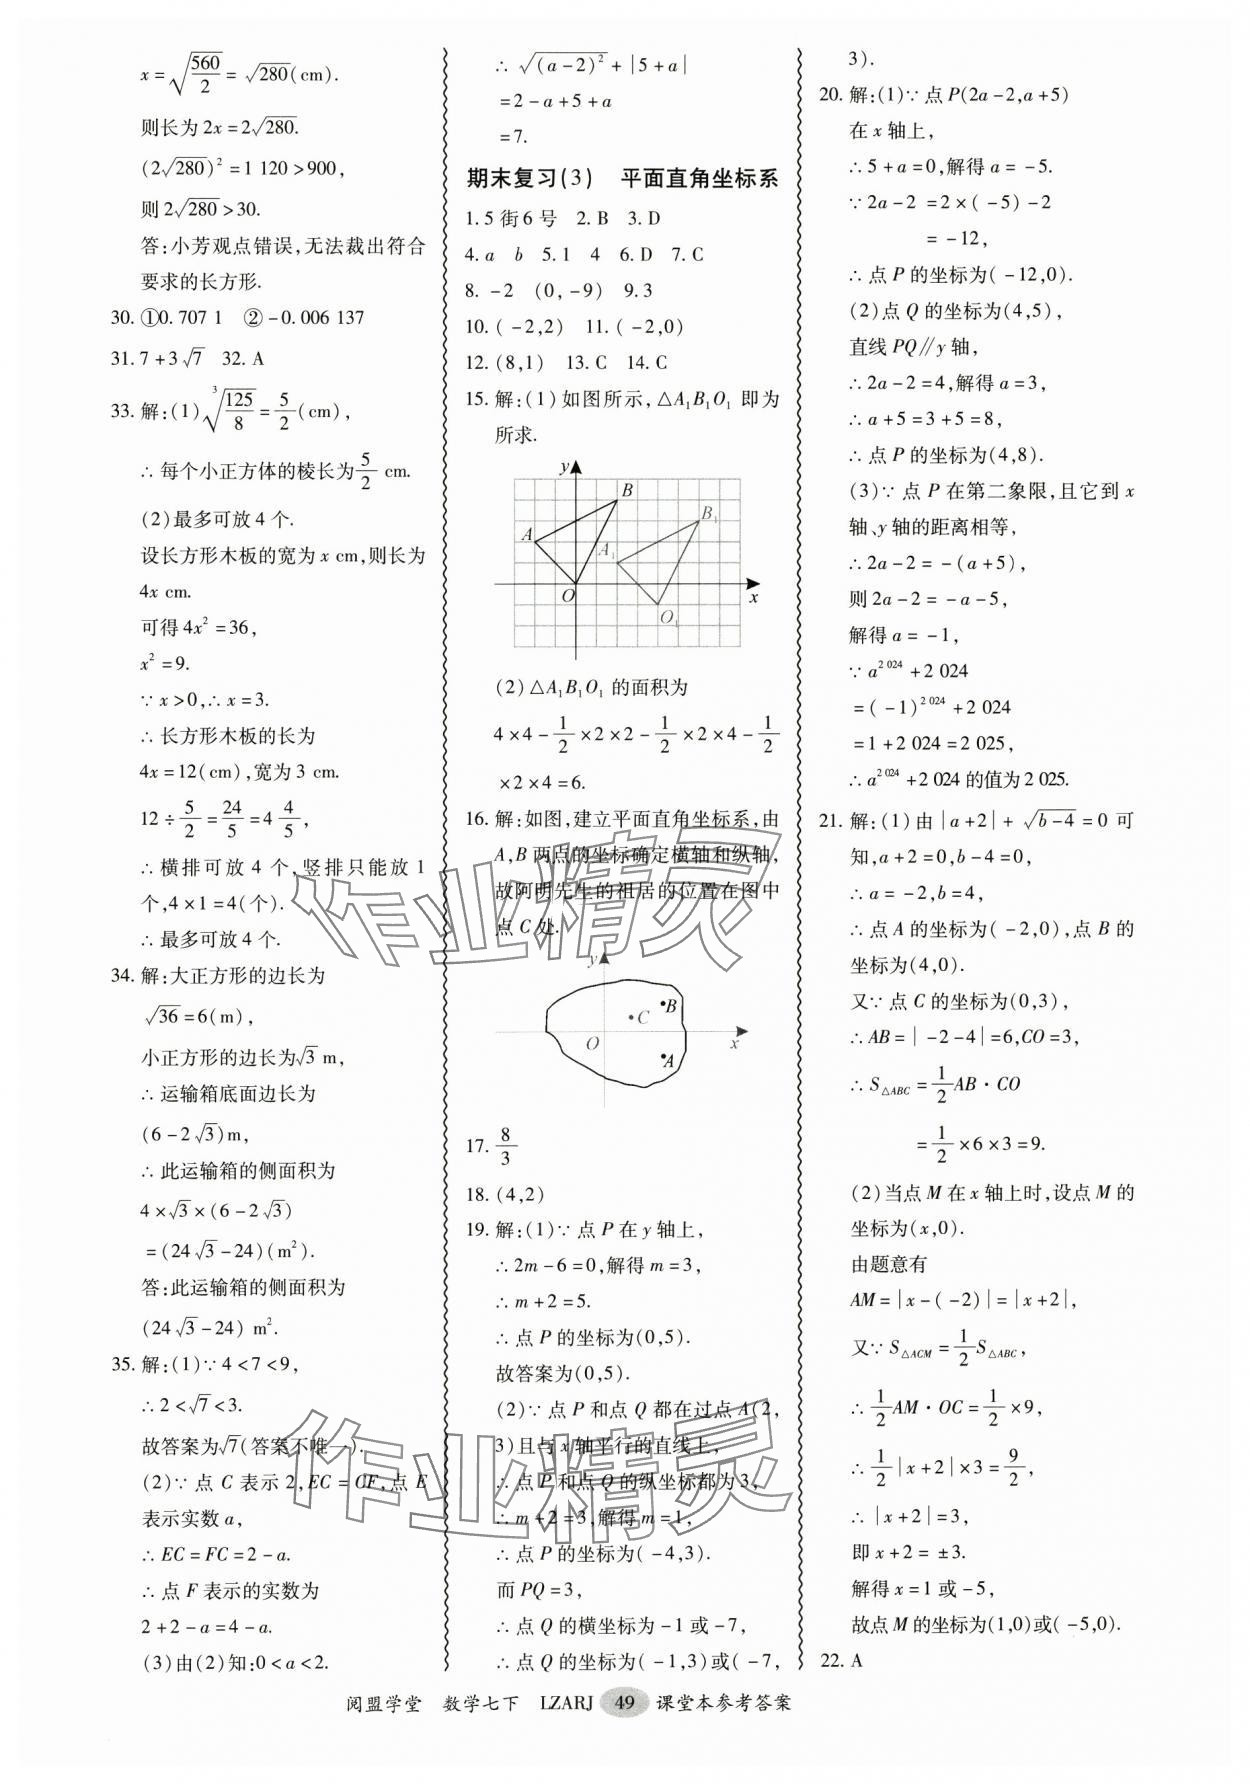 x=√(560/2)=√280(cm).
则长为2x=2√280.
(2√280)²=1 120>900,
则2√280>30.
答:小芳观点错误,无法裁出符合
要求的长方形.
30. ①0.707 1 ②-0.006 137
31. 7+3√7 32. A
33. 解:(1)³√(125/8)=5/2(cm),
∴每个小正方体的棱长为5/2 cm.
(2)最多可放4个.
设长方形木板的宽为x cm,则长为
4x cm.
可得4x²=36,
x²=9.
∵x>0,∴x=3.
∴长方形木板的长为
4x=12(cm),宽为3 cm.
12÷5/2=24/5=4 4/5,
∴横排可放4个,竖排只能放1
个,4×1=4(个).
∴最多可放4个.
34. 解:大正方形的边长为
√36=6(m),
小正方形的边长为√3 m,
∴运输箱底面边长为
(6-2√3)m,
∴此运输箱的侧面积为
4×√3×(6-2√3)
=(24√3-24)(m²).
答:此运输箱的侧面积为
(24√3-24) m².
35. 解:(1)∵4<7<9,
∴2<√7<3.
故答案为√7(答案不唯一).
(2)∵点C表示2,EC=CF,点E
表示实数a,
∴EC=FC=2-a.
∴点F表示的实数为
2+2-a=4-a.
(3)由(2)知:0<a<2.
∴√(a-2)²+|5+a|
=2-a+5+a
=7.
期末复习(3) 平面直角坐标系
1. 5街6号 2. B 3. D
4. a b 5. 1 4 6. D 7. C
8. -2 (0,-9) 9. 3
10. (-2,2) 11. (-2,0)
12. (8,1) 13. C 14. C
15. 解:(1)如图所示,△A₁B₁O₁即为
所求.
y
B
B₁
A
A₁
O
x
O₁
(2)△A₁B₁O₁的面积为
4×4-1/2×2×2-1/2×2×4-1/2
×2×4=6.
16. 解:如图,建立平面直角坐标系,由
A,B两点的坐标确定横轴和纵轴,
故阿明先生的祖居的位置在图中
点C处.
y
B
C
O
x
A
17. 8/3
18. (4,2)
19. 解:(1)∵点P在y轴上,
∴2m-6=0,解得m=3,
∴m+2=5.
∴点P的坐标为(0,5).
故答案为(0,5).
(2)∵点P和点Q都在过点A(2,
3)且与x轴平行的直线上,
∴点P和点Q的纵坐标都为3,
∴m+2=3,解得m=1,
∴点P的坐标为(-4,3).
而PQ=3,
∴点Q的横坐标为-1或-7,
∴点Q的坐标为(-1,3)或(-7,
3).
20. 解:(1)∵点P(2a-2,a+5)
在x轴上,
∴5+a=0,解得a=-5.
∵2a-2=2×(-5)-2
=-12,
∴点P的坐标为(-12,0).
(2)点Q的坐标为(4,5),
直线PQ∥y轴,
∴2a-2=4,解得a=3,
∴a+5=3+5=8,
∴点P的坐标为(4,8).
(3)∵点P在第二象限,且它到x
轴、y轴的距离相等,
∴2a-2=-(a+5),
则2a-2=-a-5,
解得a=-1,
∵a²⁰²⁴+2 024
=(-1)²⁰²⁴+2 024
=1+2 024=2 025,
∴a²⁰²⁴+2 024的值为2 025.
21. 解:(1)由|a+2|+√(b-4)=0可
知,a+2=0,b-4=0,
∴a=-2,b=4,
∴点A的坐标为(-2,0),点B的
坐标为(4,0).
又∵点C的坐标为(0,3),
∴AB=|-2-4|=6,CO=3,
∴S△ABC=1/2AB·CO
=1/2×6×3=9.
(2)当点M在x轴上时,设点M的
坐标为(x,0).
由题意有
AM=|x-(-2)|=|x+2|,
又∵S△ACM=1/2S△ABC,
∴1/2AM·OC=1/2×9,
∴1/2|x+2|×3=9/2,
∴|x+2|=3,
即x+2=±3.
解得x=1或-5,
故点M的坐标为(1,0)或(-5,0).
22. A
阅盟学堂 数学七下 LZARJ 49 课堂本参考答案
作业精灵
作业精灵